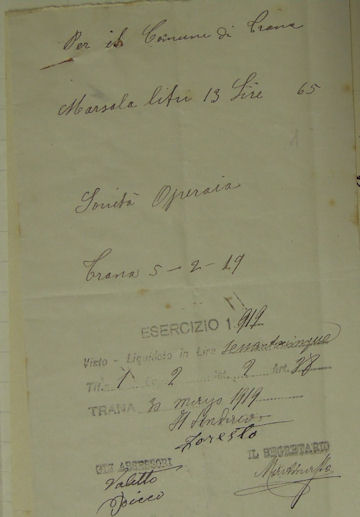 Per il Comune di Trana
Marsala litri 13 Lire 65
Società Operaia
Trana 5-2-19
ESERCIZIO 1919
Visto - Liquidato in Lire Sessantacinque
Tit. 1 2 2 Art. 28
TRANA 30 marzo 1919
Il Sindaco
Zoresto
GLI ASSESSORI
IL SEGRETARIO
Valetto